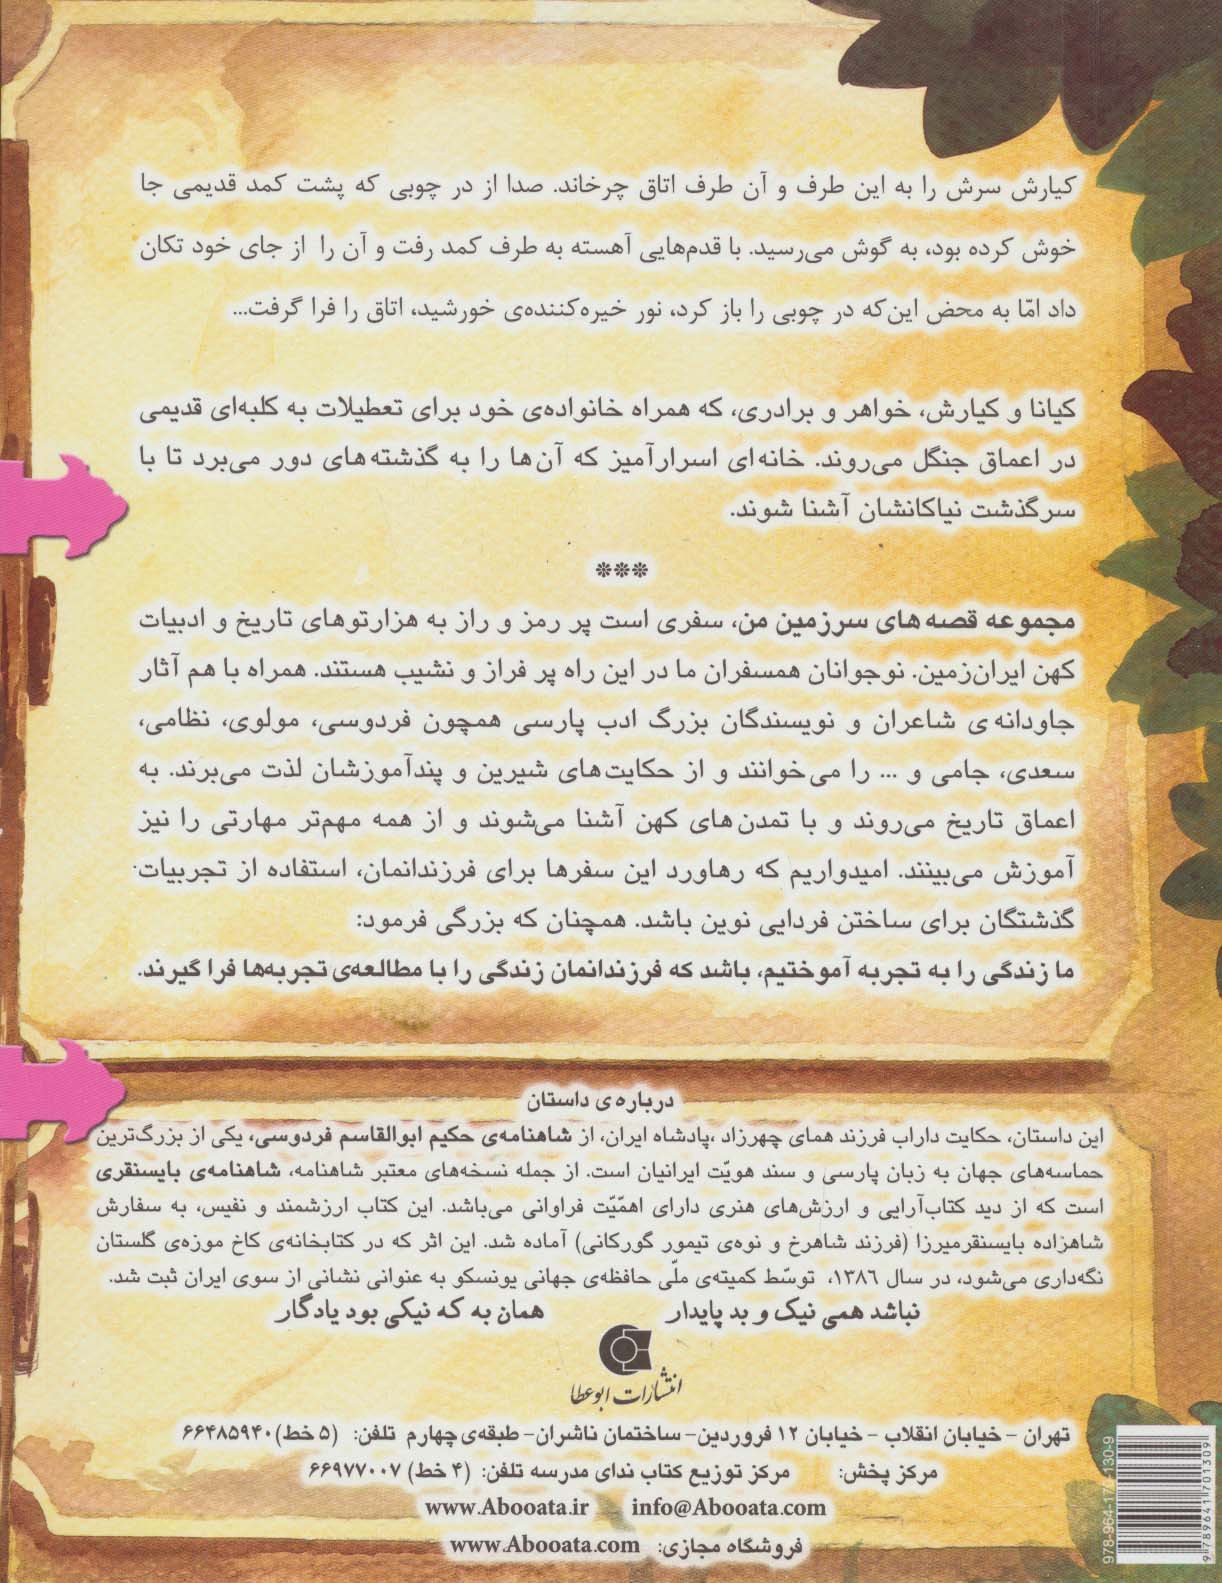 کیارش سرش را به این طرف و آن طرف اتاق چرخاند. صدا از در چوبی که پشت کمد قدیمی جا
خوش کرده بود، به گوش می‌رسید. با قدم‌هایی آهسته به طرف کمد رفت و آن را از جای خود تکان
داد امّا به محض این‌که در چوبی را باز کرد، نور خیره‌کننده‌ی خورشید، اتاق را فرا گرفت...
کیانا و کیارش، خواهر و برادری، که همراه خانواده‌ی خود برای تعطیلات به کلبه‌ای قدیمی
در اعماق جنگل می‌روند. خانه‌ای اسرارآمیز که آن‌ها را به گذشته‌های دور می‌برد تا با
سرگذشت نیاکانشان آشنا شوند.
***
مجموعه قصه‌های سرزمین من، سفری است پر رمز و راز به هزارتوهای تاریخ و ادبیات
کهن ایران‌زمین. نوجوانان همسفران ما در این راه پر فراز و نشیب هستند. همراه با هم آثار
جاودانه‌ی شاعران و نویسندگان بزرگ ادب پارسی همچون فردوسی، مولوی، نظامی،
سعدی، جامی و ... را می‌خوانند و از حکایت‌های شیرین و پندآموزشان لذت می‌برند. به
اعماق تاریخ می‌روند و با تمدن‌های کهن آشنا می‌شوند و از همه مهم‌تر مهارتی را نیز
آموزش می‌بینند. امیدواریم که رهاورد این سفرها برای فرزندانمان، استفاده از تجربیات
گذشتگان برای ساختن فردایی نوین باشد. همچنان که بزرگی فرمود:
ما زندگی را به تجربه آموختیم، باشد که فرزندانمان زندگی را با مطالعه‌ی تجربه‌ها فرا گیرند.
درباره‌ی داستان
این داستان، حکایت داراب فرزند همای چهرزاد ،پادشاه ایران، از شاهنامه‌ی حکیم ابوالقاسم فردوسی، یکی از بزرگ‌ترین
حماسه‌های جهان به زبان پارسی و سند هویّت ایرانیان است. از جمله نسخه‌های معتبر شاهنامه، شاهنامه‌ی بایسنقری
است که از دید کتاب‌آرایی و ارزش‌های هنری دارای اهمّیّت فراوانی می‌باشد. این کتاب ارزشمند و نفیس، به سفارش
شاهزاده بایسنقرمیرزا (فرزند شاهرخ و نوه‌ی تیمور گورکانی) آماده شد. این اثر که در کتابخانه‌ی کاخ موزه‌ی گلستان
نگه‌داری می‌شود، در سال ۱۳۸۶، توسّط کمیته‌ی ملّی حافظه‌ی جهانی یونسکو به عنوانی نشانی از سوی ایران ثبت شد.
نباشد همی نیک و بد پایدار همان به که نیکی بود یادگار
انتشارات ابوعطا
تهران - خیابان انقلاب - خیابان ۱۲ فروردین- ساختمان ناشران- طبقه‌ی چهارم تلفن: (۵ خط)۶۶۴۸۵۹۴۰
مرکز پخش: مرکز توزیع کتاب ندای مدرسه تلفن: (۴ خط) ۶۶۹۷۷۰۰۷
www.Abooata.ir info@Abooata.com
فروشگاه مجازی: www.Abooata.com
9789641701309